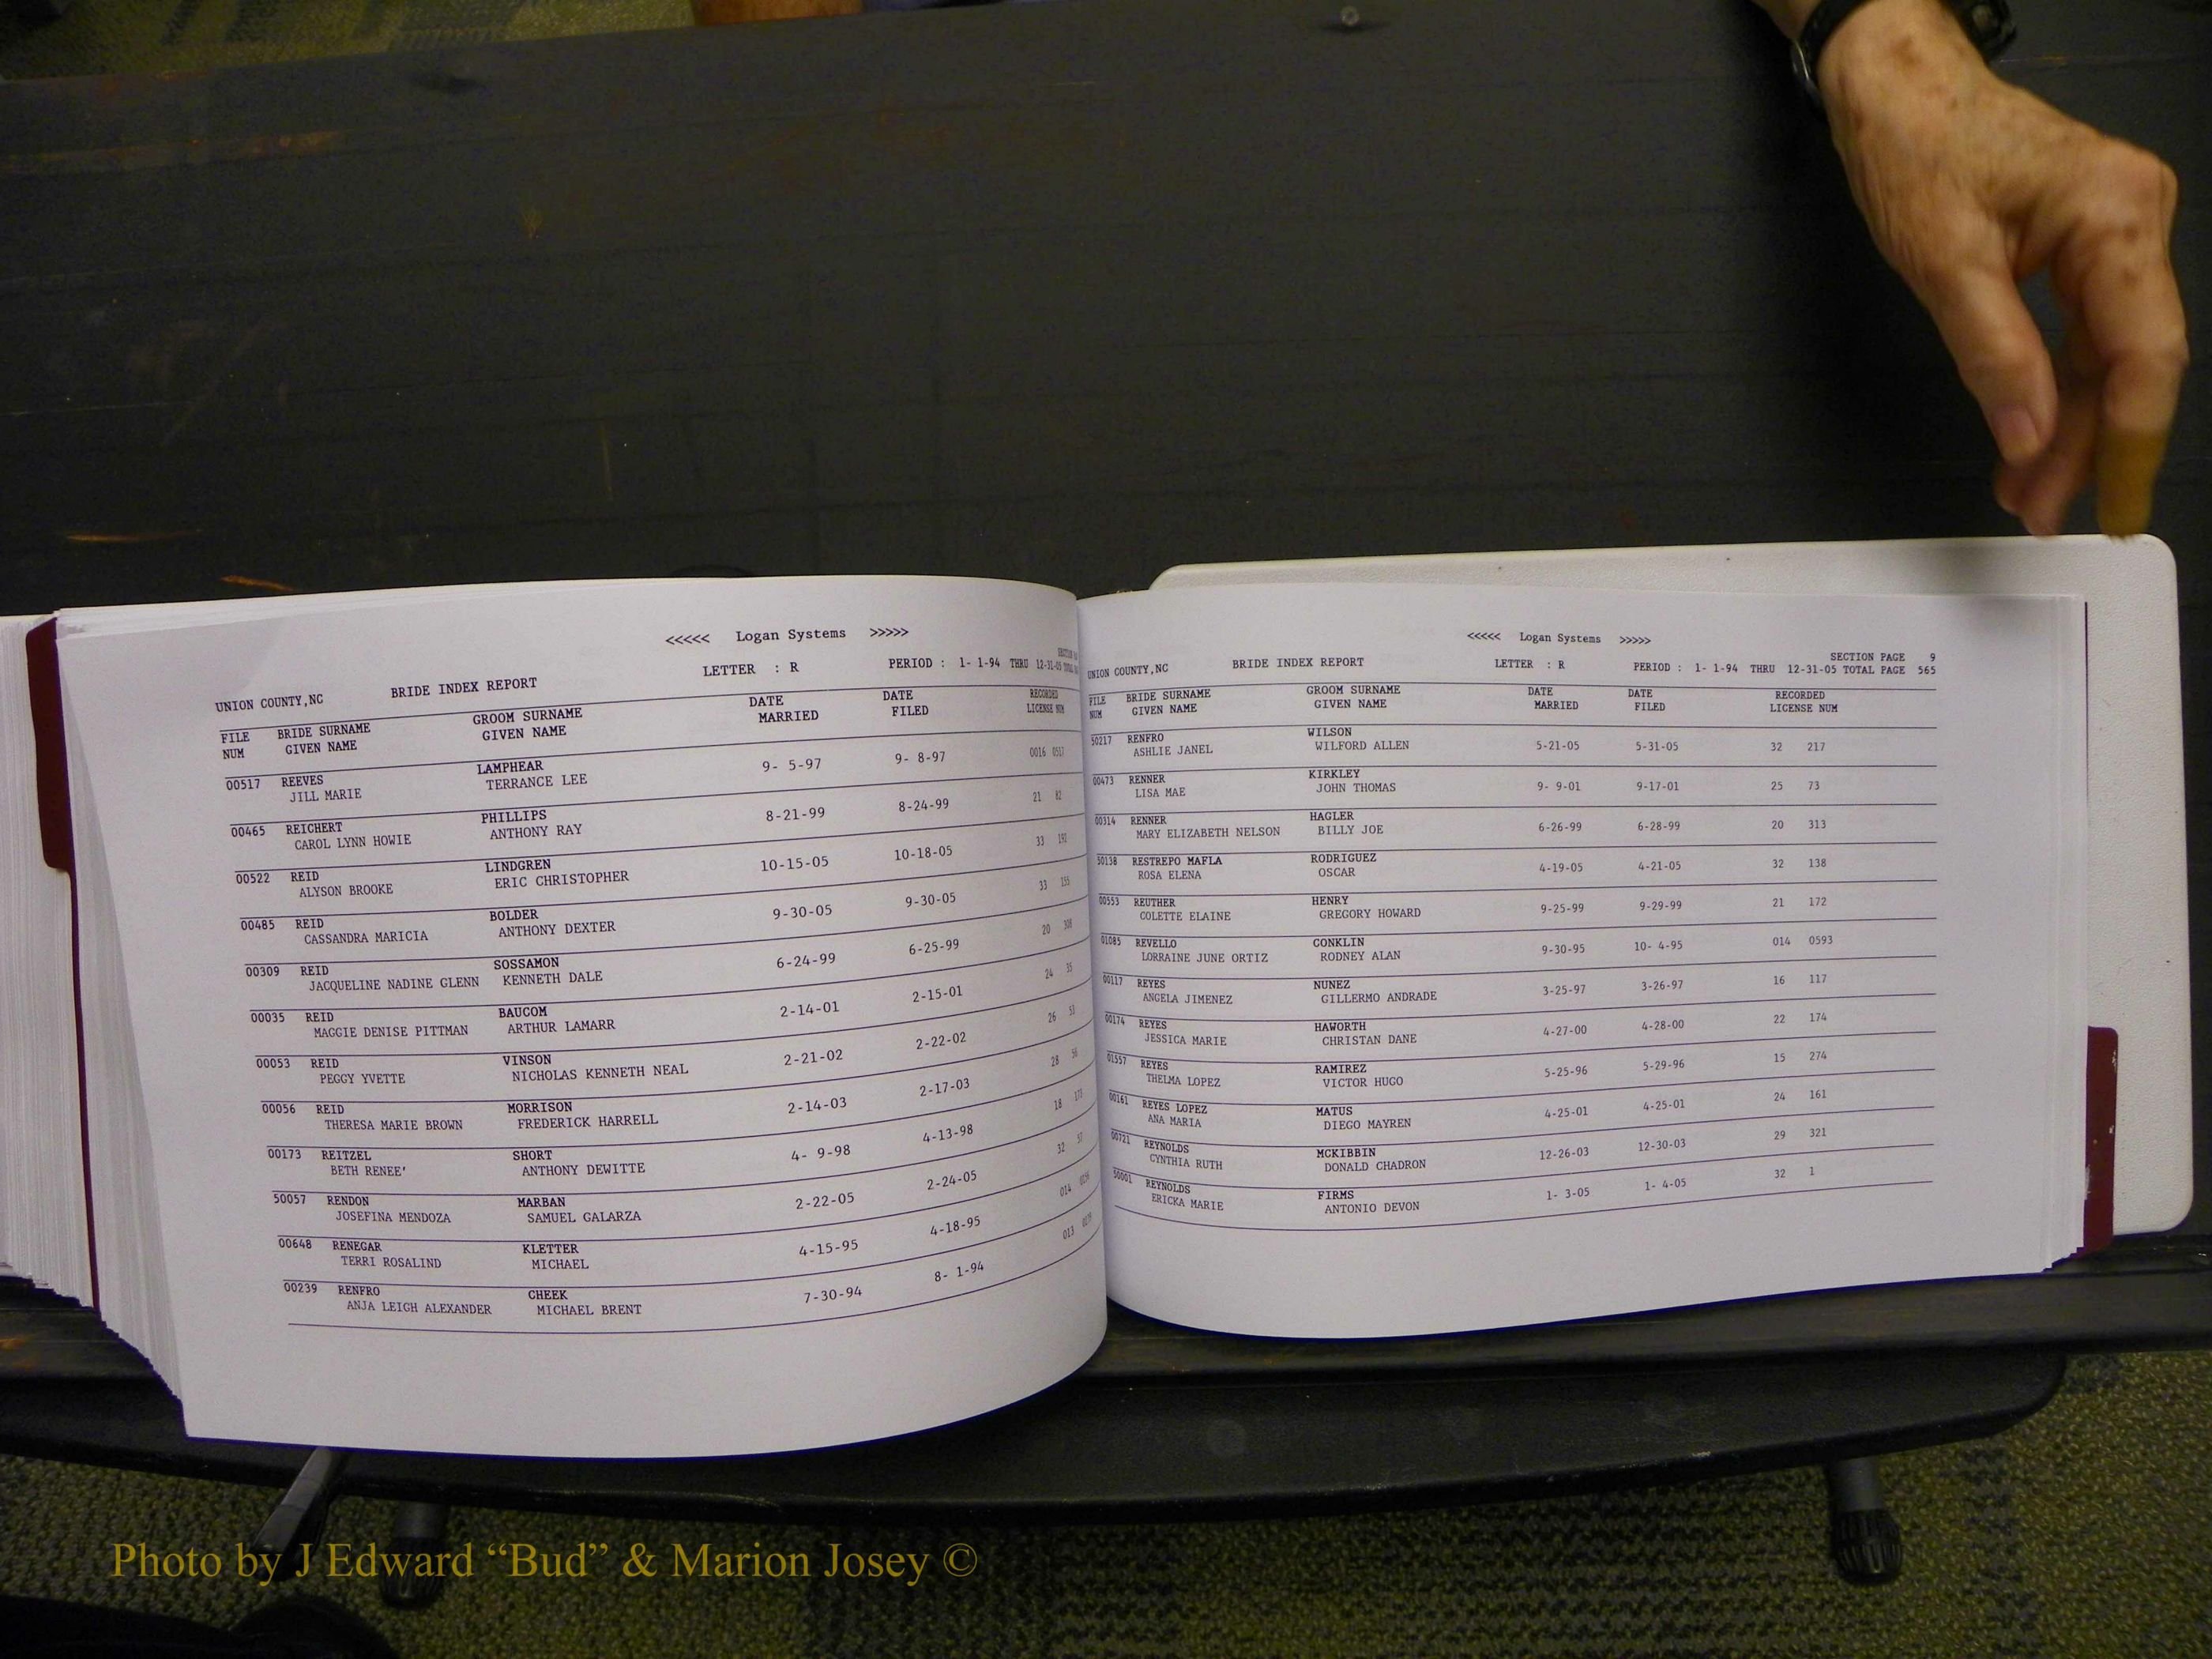 <<<<< Logan Systems >>>>>
UNION COUNTY,NC BRIDE INDEX REPORT LETTER : R PERIOD : 1- 1-94 THRU 12-31-05 TOTAL
FILE BRIDE SURNAME GROOM SURNAME DATE DATE RECORDED
NUM GIVEN NAME GIVEN NAME MARRIED FILED LICENSE NUM
00517 REEVES LAMPHEAR 9- 5-97 9- 8-97 0016 0517
JILL MARIE TERRANCE LEE
00465 REICHERT PHILLIPS 8-21-99 8-24-99 21 82
CAROL LYNN HOWIE ANTHONY RAY
00522 REID LINDGREN 10-15-05 10-18-05 33
ALYSON BROOKE ERIC CHRISTOPHER
00485 REID BOLDER 9-30-05 9-30-05 33 155
CASSANDRA MARICIA ANTHONY DEXTER
00309 REID SOSSAMON 6-24-99 6-25-99 20 308
JACQUELINE NADINE GLENN KENNETH DALE
00035 REID BAUCOM 2-14-01 2-15-01 24 35
MAGGIE DENISE PITTMAN ARTHUR LAMARR
00053 REID VINSON 2-21-02 2-22-02 26 53
PEGGY YVETTE NICHOLAS KENNETH NEAL
00056 REID MORRISON 2-14-03 2-17-03 28 56
THERESA MARIE BROWN FREDERICK HARRELL
00173 REITZEL SHORT 4- 9-98 4-13-98 18 173
BETH RENEE' ANTHONY DEWITTE
50057 RENDON MARBAN 2-22-05 2-24-05 32 57
JOSEFINA MENDOZA SAMUEL GALARZA
00648 RENEGAR KLETTER 4-15-95 4-18-95 014
TERRI ROSALIND MICHAEL
00239 RENFRO CHEEK 7-30-94 8- 1-94 013
ANJA LEIGH ALEXANDER MICHAEL BRENT
<<<<< Logan Systems >>>>>
SECTION PAGE 9
UNION COUNTY,NC BRIDE INDEX REPORT LETTER : R PERIOD : 1- 1-94 THRU 12-31-05 TOTAL PAGE 565
FILE BRIDE SURNAME GROOM SURNAME DATE DATE RECORDED
NUM GIVEN NAME GIVEN NAME MARRIED FILED LICENSE NUM
50217 RENFRO WILSON 5-21-05 5-31-05 32 217
ASHLIE JANEL WILFORD ALLEN
00473 RENNER KIRKLEY 9- 9-01 9-17-01 25 73
LISA MAE JOHN THOMAS
00314 RENNER HAGLER 6-26-99 6-28-99 20 313
MARY ELIZABETH NELSON BILLY JOE
50138 RESTREPO MAFLA RODRIGUEZ 4-19-05 4-21-05 32 138
ROSA ELENA OSCAR
00553 REUTHER HENRY 9-25-99 9-29-99 21 172
COLETTE ELAINE GREGORY HOWARD
01085 REVELLO CONKLIN 9-30-95 10- 4-95 014 0593
LORRAINE JUNE ORTIZ RODNEY ALAN
00117 REYES NUNEZ 3-25-97 3-26-97 16 117
ANGELA JIMENEZ GILLERMO ANDRADE
00174 REYES HAWORTH 4-27-00 4-28-00 22 174
JESSICA MARIE CHRISTAN DANE
01557 REYES RAMIREZ 5-25-96 5-29-96 15 274
THELMA LOPEZ VICTOR HUGO
00161 REYES LOPEZ MATUS 4-25-01 4-25-01 24 161
ANA MARIA DIEGO MAYREN
00721 REYNOLDS MCKIBBIN 12-26-03 12-30-03 29 321
CYNTHIA RUTH DONALD CHADRON
50001 REYNOLDS FIRMS 1- 3-05 1- 4-05 32 1
ERICKA MARIE ANTONIO DEVON
Photo by J Edward “Bud” & Marion Josey ©